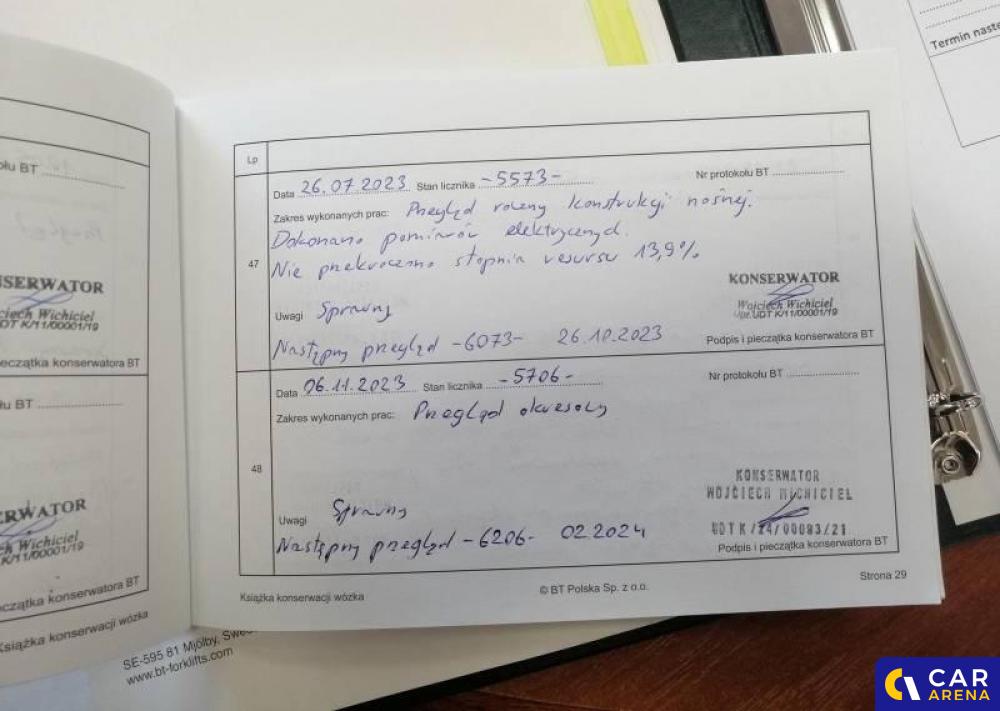 Termin nast
ołu BT
SERWATOR
ciech Wichiciel
UDT K/11/00001/19
eczątka konserwatora BT
łu BT
RWATOR
h Wichiciel
K/11/00001/19
czątka konserwatora BT
Książka konserwacji wózka
Lp
47
Data 26.07.2023 Stan licznika -5573- Nr protokołu BT
Zakres wykonanych prac: Przegląd roczny konstrukcji nośnej.
Dokonano pomiarów elektrycznych.
Nie przekroczono stopnia resursu 13,9%
KONSERWATOR
Wojciech Wichiciel
Upr. UDT K/11/00001/19
Uwagi Sprawny
Następny przegląd -6073- 26.10.2023
Podpis i pieczątka konserwatora BT
48
Data 06.11.2023 Stan licznika -5706- Nr protokołu BT
Zakres wykonanych prac: Przegląd okresowy
KONSERWATOR
WOJCIECH WICHICIEL
UDT K/24/00083/21
Uwagi Sprawny
Następny przegląd -6206- 02.2024
Podpis i pieczątka konserwatora BT
Książka konserwacji wózka © BT Polska Sp. z o.o. Strona 29
SE-595 81 Mjölby, Swe
www.bt-forklifts.com
CAR
ARENA